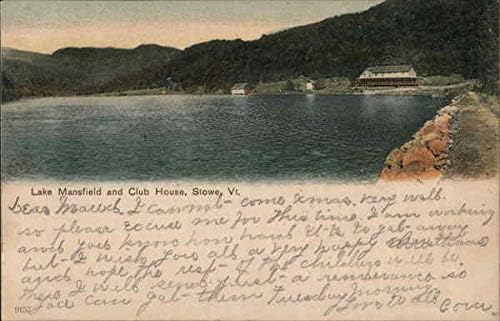 Lake Mansfield and Club House, Stowe, Vt.
Dear I cannot come Xmas very well.
so please excuse me for this time. I am working
and you know how hard it is to get away
but I wish you all a very happy Christmas
and hope the rest of the children will be
there I will send just a remembrance so
you can get them Tuesday Morning
9157 Love to all